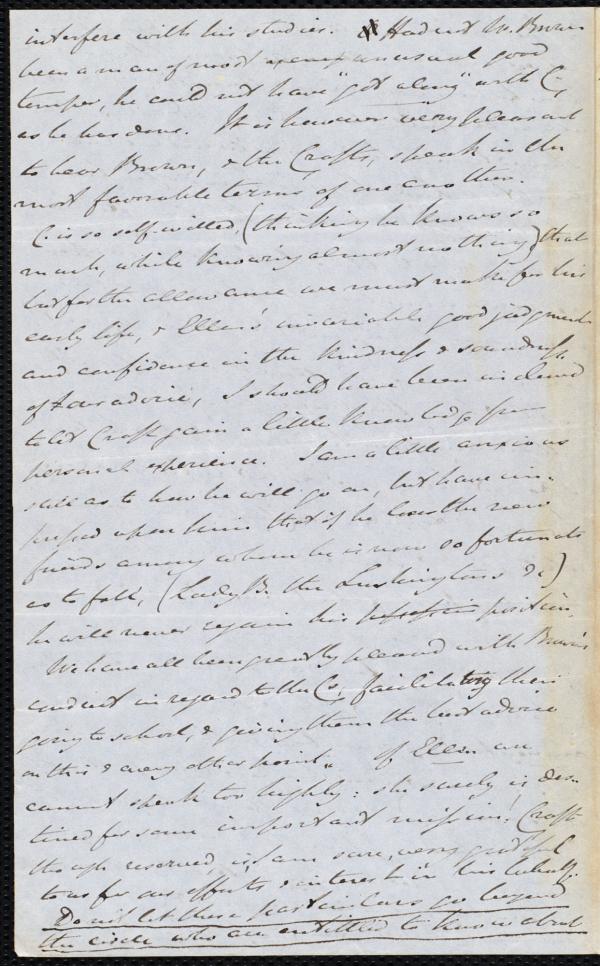 interfere with his studies. Had not Mr. Brown
been a man of most unusual good
temper, he could not have "got along" with C,
as he has done. It is however very pleasant
to hear Brown, & the Crafts, speak in the
most favorable terms of one another.
C. is so self-willed, (thinking he knows so
much, while knowing almost nothing) that
but for the allowance we must make for his
early life, & Ellen's invariable good judgment
and confidence in the kindness & soundness
of our advice, I should have been inclined
to let Craft gain a little knowledge from
personal experience. I am a little anxious
as to how he will go on, but have im-
pressed upon him that if he loses the new
friends among whom he is now so fortunate
as to fall, (Lady B. the Lushingtons &c)
he will never regain his position.
We have all been greatly pleased with Brown's
conduct in regard to the Cs, facilitating their
going to school, & giving them the best advice
on this & every other point. Of Ellen we
cannot speak too highly: she surely is des-
tined for some important mission! Craft
though reserved, is, I am sure, very grateful
to us for our efforts & interest in his behalf.
Do not let these particulars go beyond
the circle who are entitled to know about